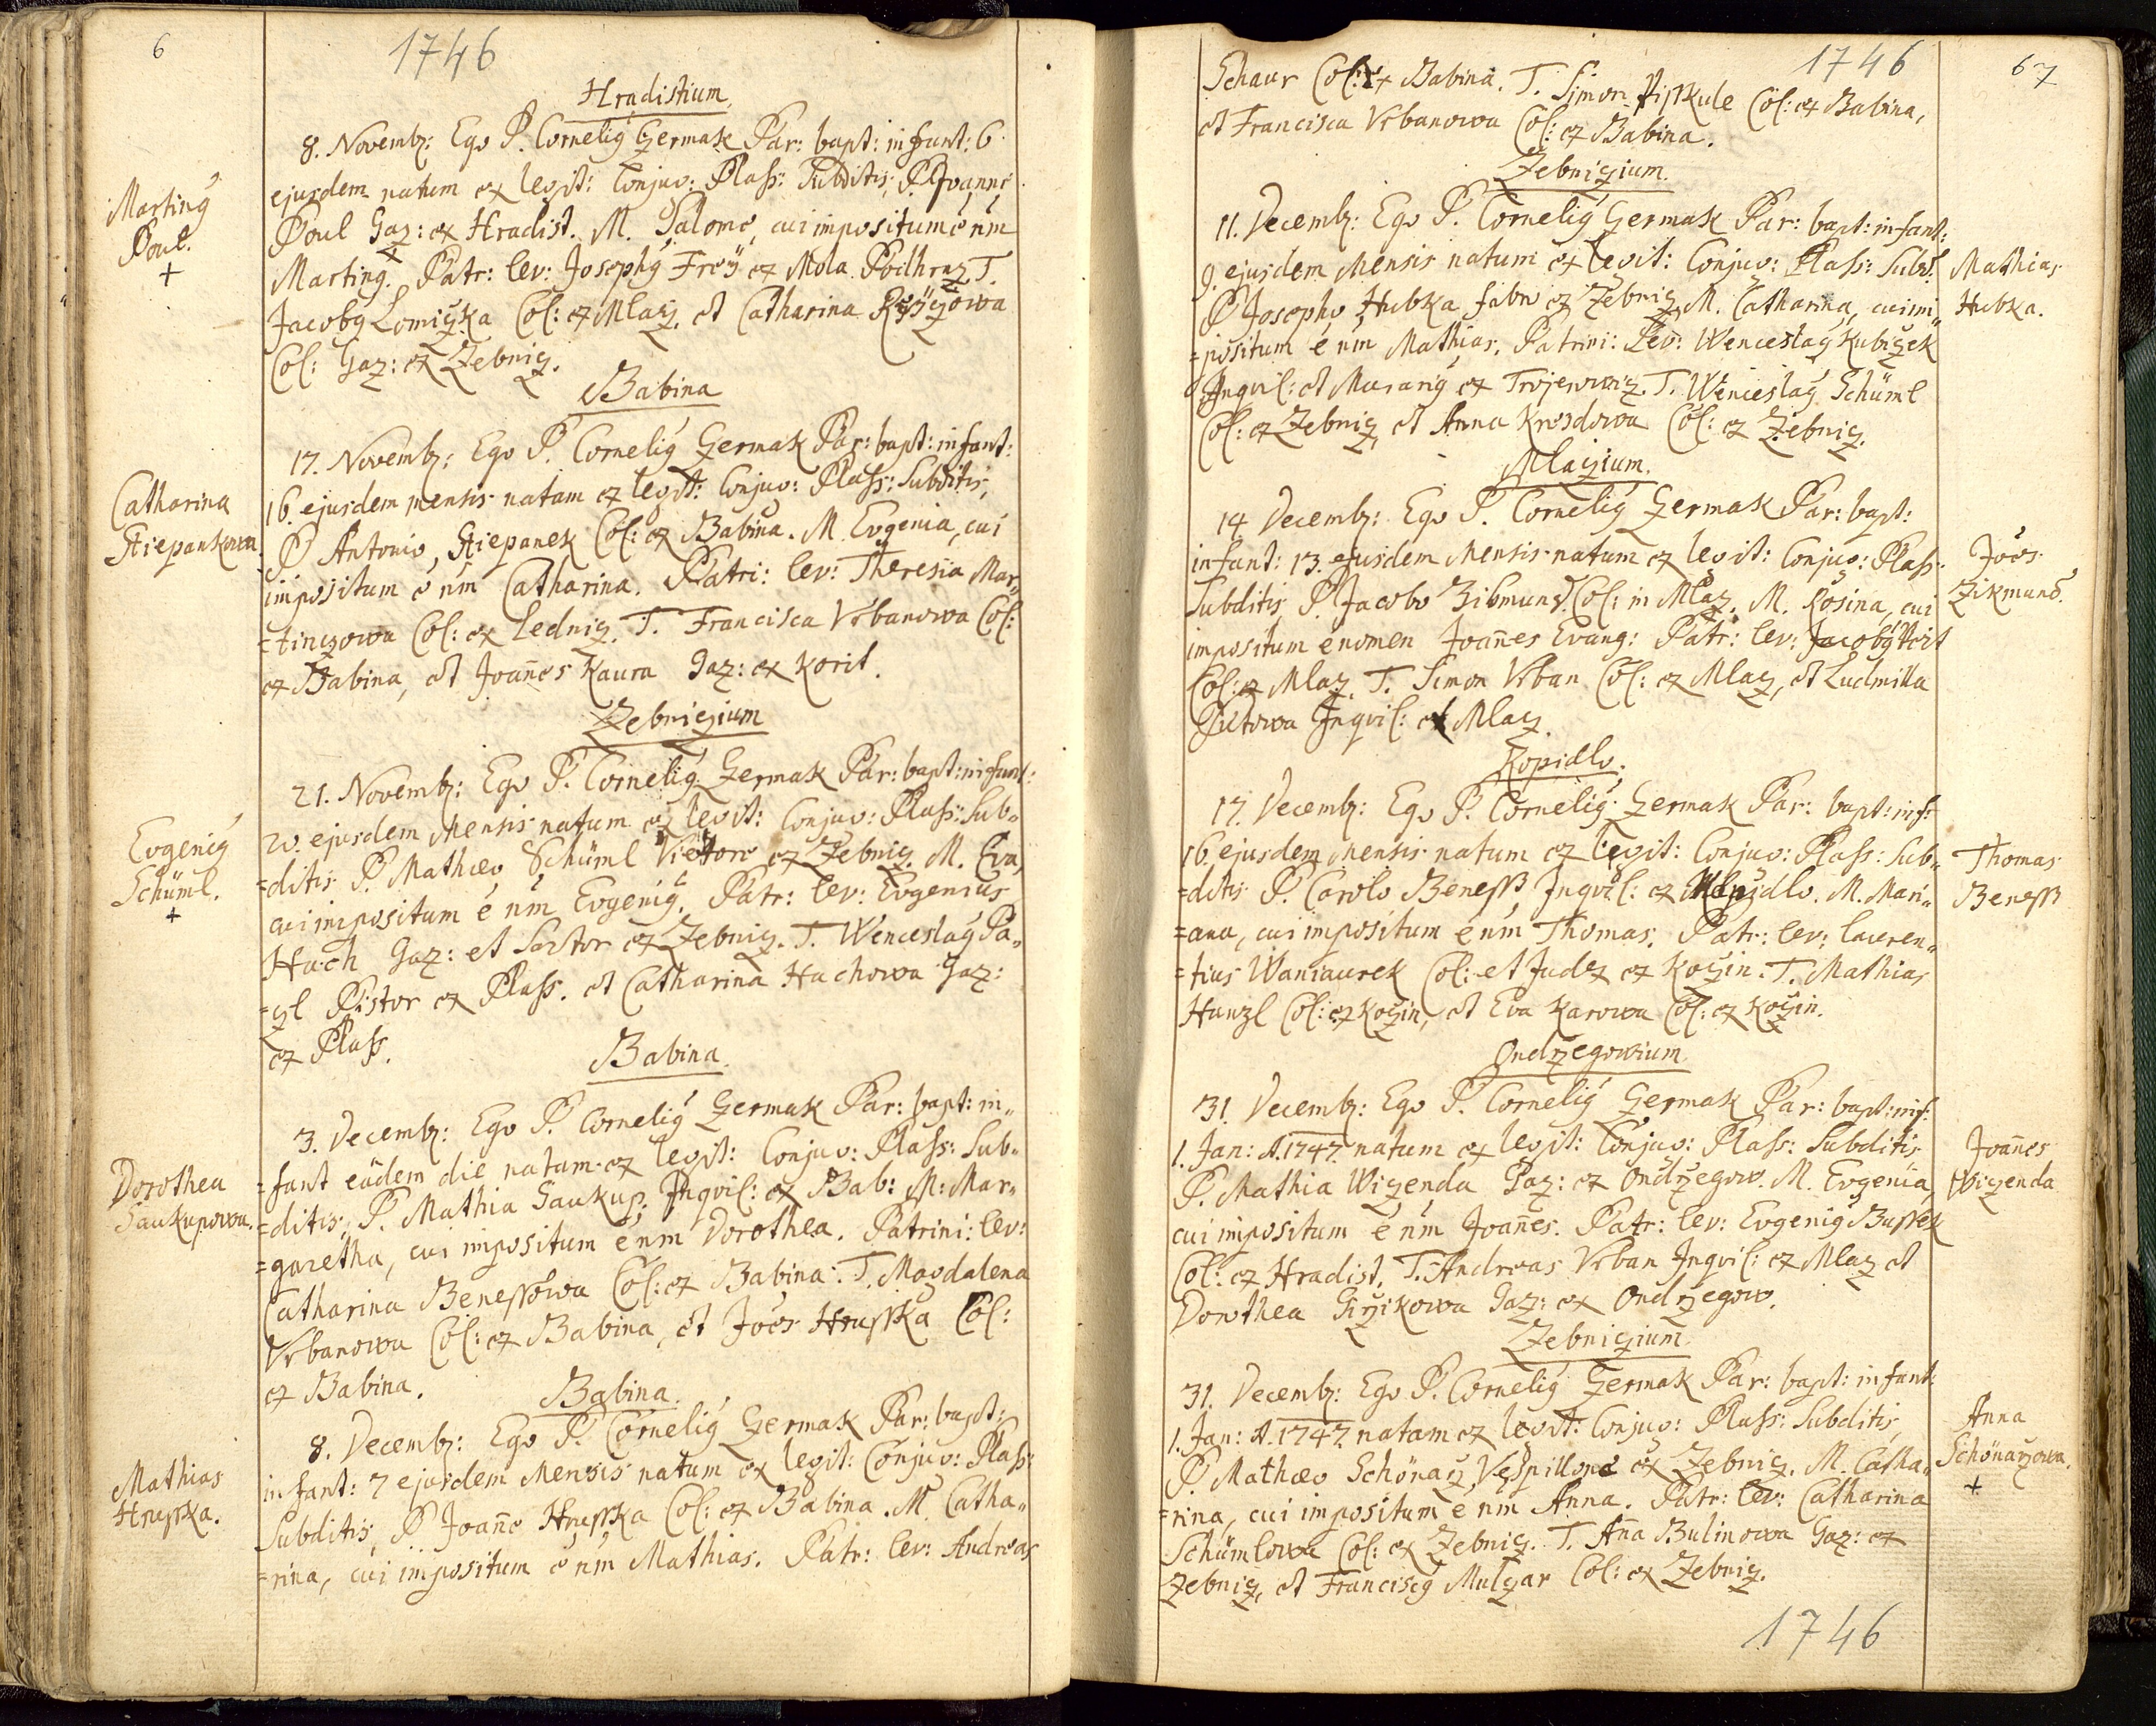 6
1746
Hradistium.
8. Novemb: Ego P. Cornelig Czermak Par: bapt: infant: 6.
ejusdem natum ex legit: Conjug: Plass: Subditis, P. Joanne
Poul Gaz: ex Hradist. M. Salome, cui impositum e nm
Marting. Patr: lev: Josephg Frey ex Mola Podhraz T.
Jacobg Lomiczka Col: ex Mlacz, et Catharina
Col: Gaz: ex Zebnicz.
Marting
Poul.
+
Babina
17. Novemb: Ego P. Cornelig Czermak Par: bapt: infant:
16. ejusdem mensis natam ex legit: Conjug: Plass: Subditis,
P Antonio Stiepanek Col: ex Babina. M. Eugenia, cui
impositum e nm Catharina. Patri: lev: Theresia Mar„
=tinczowa Col: ex Lednicz. T. Francisca Vrbanowa Col:
ex Babina, et Joañes Kaura Gaz: ex Korit.
Catharina
Stiepankowa.
Zebniczium
21. Novemb: Ego P. Cornelig Czermak Par: bapt: infant:
20. ejusdem Mensis natum ex legit: Conjug: Plass: Sub„
=ditis P. Mathæo Schüml Viëtore ex Zebnicz. M. Eva,
cui impositum e nm Evgenig. Patr: lev: Evgenius
Hach Gaz: et Sartor ex Zebnicz. T. Wenceslag Pa„
=czl Pistor ex Plass. et Catharina Hachowa Gaz:
ex Plass.
Evgenig
Schüml.
+
Babina.
3. Decemb: Ego P. Cornelig Czermak Par: bapt: in„
=fant eâdem die natam ex legit: Conjug: Plass: Sub„
=ditis, P. Mathia Saukup Jnqvil: ex Bab: M: Mar„
=garetha, cui impositum e nm Dorothea. Patrini: lev:
Catharina Benessowa Col: ex Babina. T. Magdalena
Vrbanowa Col: ex Babina, et Joês Hrusska Col:
ex Babina.
Dorothea
Saukupowa.
Babina.
8. Decemb: Ego P. Cornelig Czermak Par: bapt:
infant: 7 ejusdem Mensis natum ex legit: Conjug: Plass:
Subditis, P Joañe Hrusska Col: ex Babina. M. Catha„
=rina, cui impositum e nm Mathias. Patr: lev: Andreas
Mathias
Hrusska.
1746
67
Schaur Col: ex Babina. T. Simon Pisskule Col: ex Babina,
et Francisca Vrbanowa Col: ex Babina.
Zebniczium.
11. Decemb: Ego P. Cornelig Czermak Par: bapt: infant:
9. ejusdem Mensis natum ex legit: Conjug: Plass: Subd.
P Josepho Hubka fabro ex Zebnicz, M. Catharina, cui im„
=positum e nm Mathias. Patrini: Lev: Wenceslag Kubiczek
Jnqvil: et Murarig ex Trojerwicz. T. Wenceslag Schüml
Col: ex Zebnicz, et Anna Krosdowa Col: ex Zebnicz.
Mathias
Hubka.
Mlaczium.
14 Decemb: Ego P. Cornelig Czermak Par: bapt:
infant: 13. ejusdem Mensis natum ex legit: Conjug: Plass:
Subditis P Jacobo Zikmund Col: in Mlaz. M. Rosina, cui
impositum e nomen Joañes Evang: Patr: lev: Jacobg Veit
Col: ex Mlaz. T. Simon Vrban Col: ex Mlacz, et Ludmilla
Jnqvil: ex Mlacz.
Joês
Zikmund.
Kopidlo.
17. Decemb: Ego P. Cornelig Czermak Par: bapt: inf:
16. ejusdem Mensis natum ex legit: Conjug: Plass: Sub„
=ditis P. Carolo Beness, Jnqvil: ex Kopidlo. M. Mari„
=ana, cui impositum e nm Thomas. Patr: lev: Lauren„
=tius Waniaurek Col: et Judex ex Koczin. T. Mathias
Hanzl Col: ex Koczin, et Eva Karowa Col: ex Koczin.
Thomas
Beness
Ondrzegowium
31. Decemb: Ego P. Cornelig Czermak Par: bapt: inf:
1. Jan: A. 1747. natum ex legit: Conjug: Plass: Subditis
P. Mathia Wizenda Gaz: ex Ondrzegow. M. Evgenia
cui impositum e nm Joañes. Patr: lev: Evgenig Bussek
Col: ex Hradist. T. Andreas Vrban Jnqvil: ex Mlaz et
Dorothea Girzikowa Gaz: ex Ondrzegow.
Joañes
Wizenda
Zebniczium
31. Decemb: Ego P. Cornelig Czermak Par: bapt: infant:
1. Jan: A. 1747. natam ex legit: Conjug: Plass: Subditis,
P. Mathæo Schönacz, Vespillone ex Zebnicz. M. Catha„
=rina, cui impositum e nm Anna. Patr: lev: Catharina
Schümlowa Col: ex Zebnicz. T. Aña Bulinowa Gaz: ex
Zebnicz, et Franciscg Mulczar Col: ex Zebnicz.
Anna
Schönaczowa.
+
1746